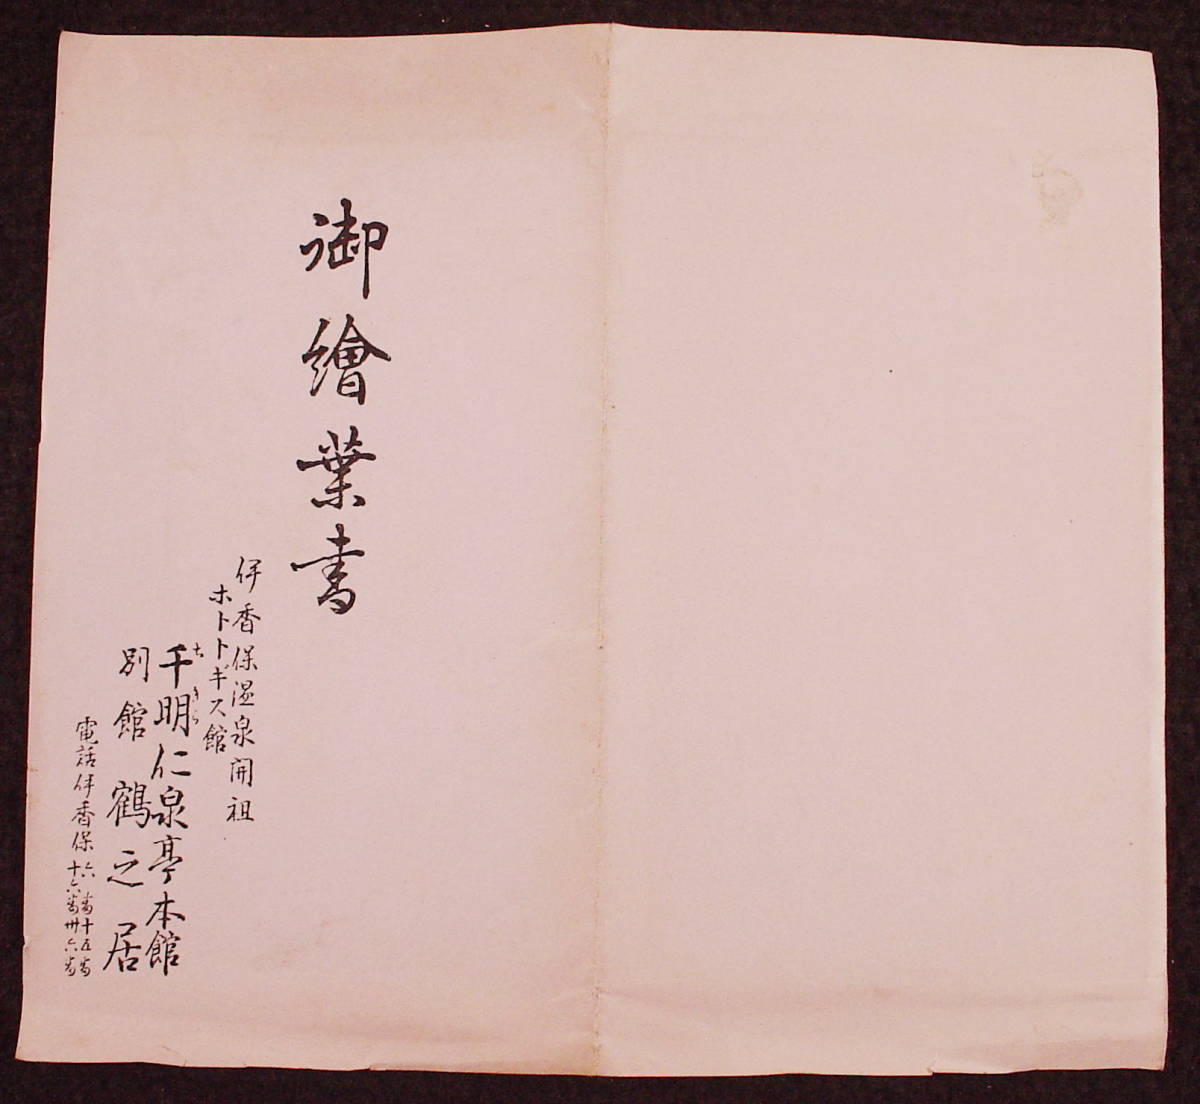 御繪葉書
伊香保温泉開祖
ホトトギス館
千明仁泉亭本館
ちきら
別館 鶴之居
電話伊香保 六番 十五番
十六番 卅六番